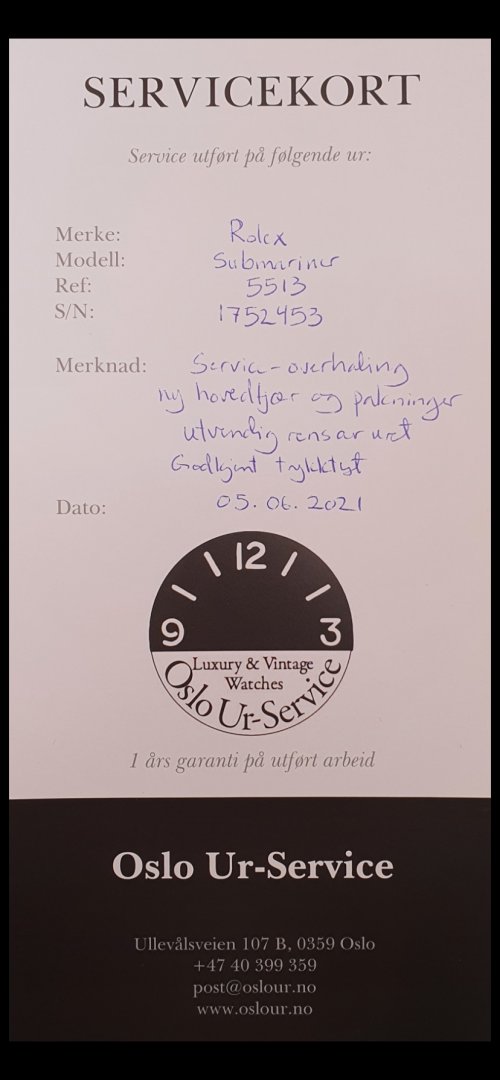 SERVICEKORT
Service utført på følgende ur:
Merke: Rolex
Modell: Submariner
Ref: 5513
S/N: 1752453
Merknad: Service-overhaling
ny hovedfjær og pakninger
utvendig rens av uret
Godkjent trykktest
Dato: 05.06.2021
12
9 3
Luxury & Vintage
Watches
Oslo Ur-Service
1 års garanti på utført arbeid
Oslo Ur-Service
Ullevålsveien 107 B, 0359 Oslo
+47 40 399 359
post@oslour.no
www.oslour.no